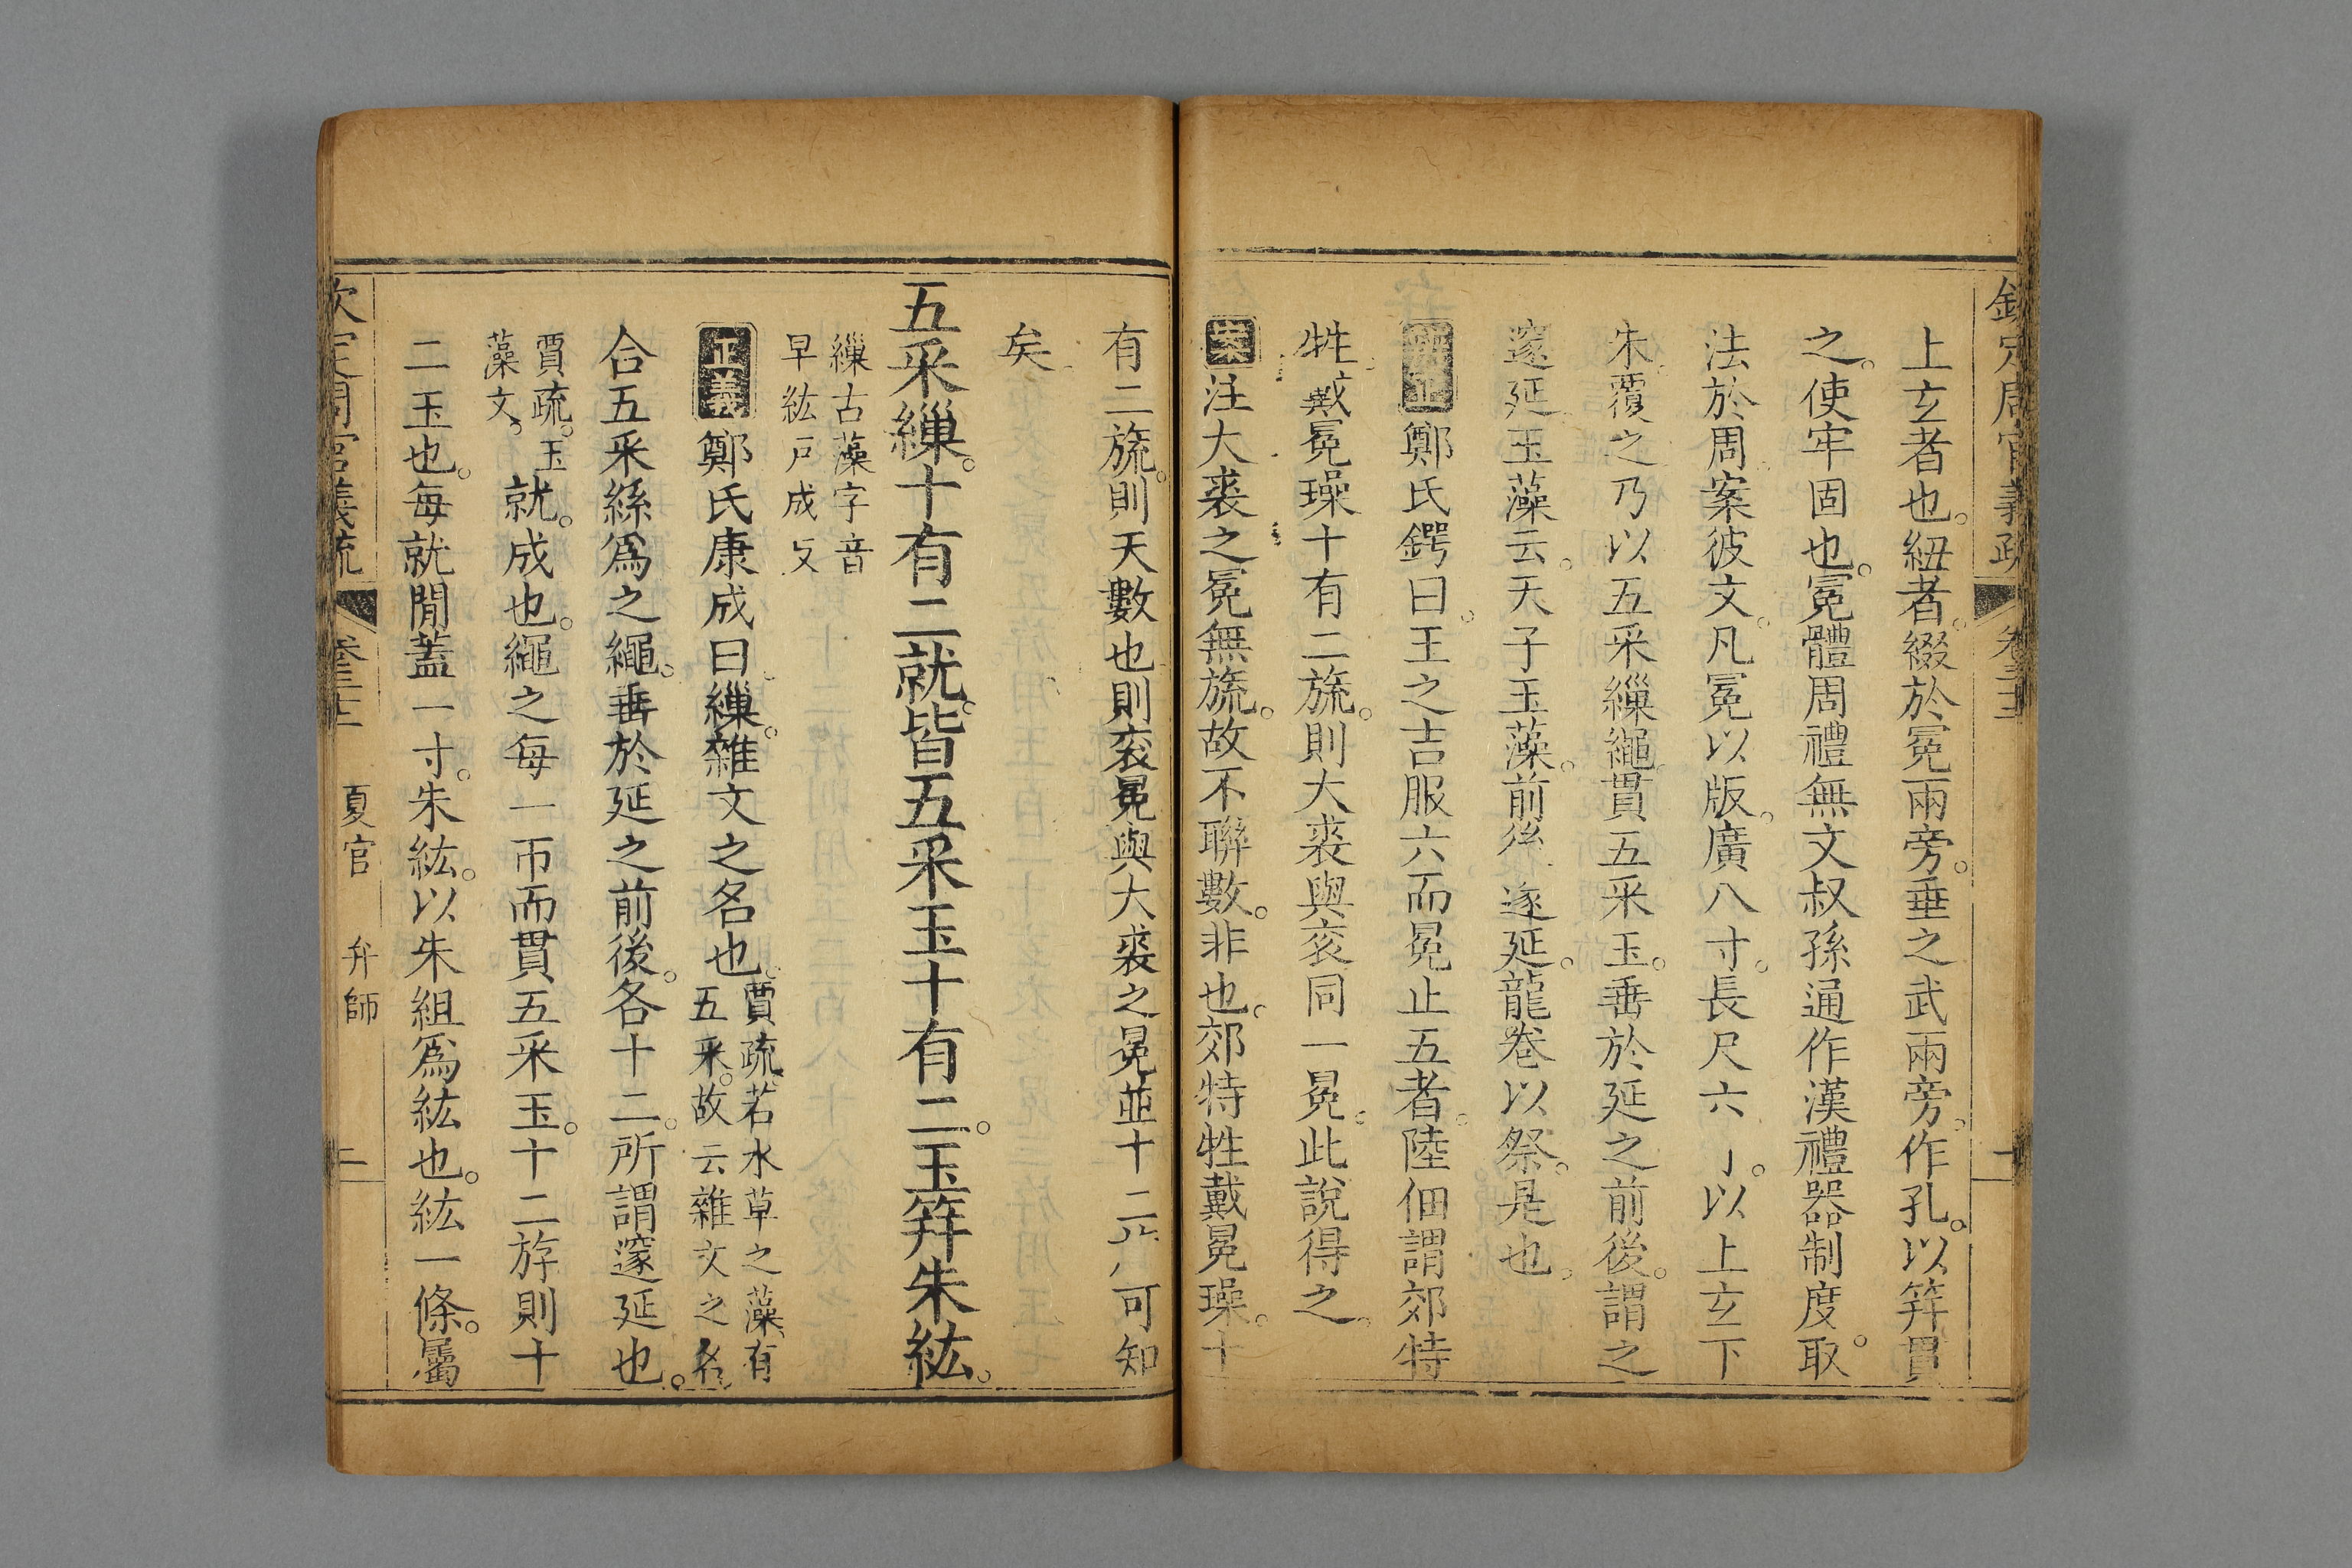 欽定周官義疏 卷三十二 一
上玄者也。紐者。綴於冕兩旁。垂之武兩旁。作孔。以筓貫
之。使牢固也。冕體周禮無文叔孫通作漢禮器制度。取
法於周案彼文。凡冕以版。廣八寸。長尺六 。以上玄下
朱。覆之乃以五采繅繩貫五采玉。垂於延之前後。謂之
邃延玉藻云。天子玉藻。前後 邃延。龍卷以祭。是也。
辨正 鄭氏鍔曰。王之吉服六而冕止五者。陸佃謂郊特
牲。戴冕璪十有二旒。則大裘與衮同一冕。此說得之。
案 注大裘之冕無旒。故不聯數。非也。郊特牲戴冕璪。十
有二旒。則天數也則衮冕與大裘之冕並十二 可知
矣。
五采繅。十有二就。皆五采玉十有二。玉筓朱紘。
繅古藻字音
早紘戸成反
正義 鄭氏康成曰。繅。雜文之名也。賈疏。若水草之藻。有
五采。故云雜文之名。
合五采絲爲之繩。垂於延之前後。各十二。所謂邃延也。
賈疏。玉
藻文。就。成也。繩之每一帀而貫五采玉。十二斿則十
二玉也。每就閒蓋一寸。朱紘。以朱組爲紘也。紘一條。屬
欽定周官義疏 卷三十二 夏官 弁師 二